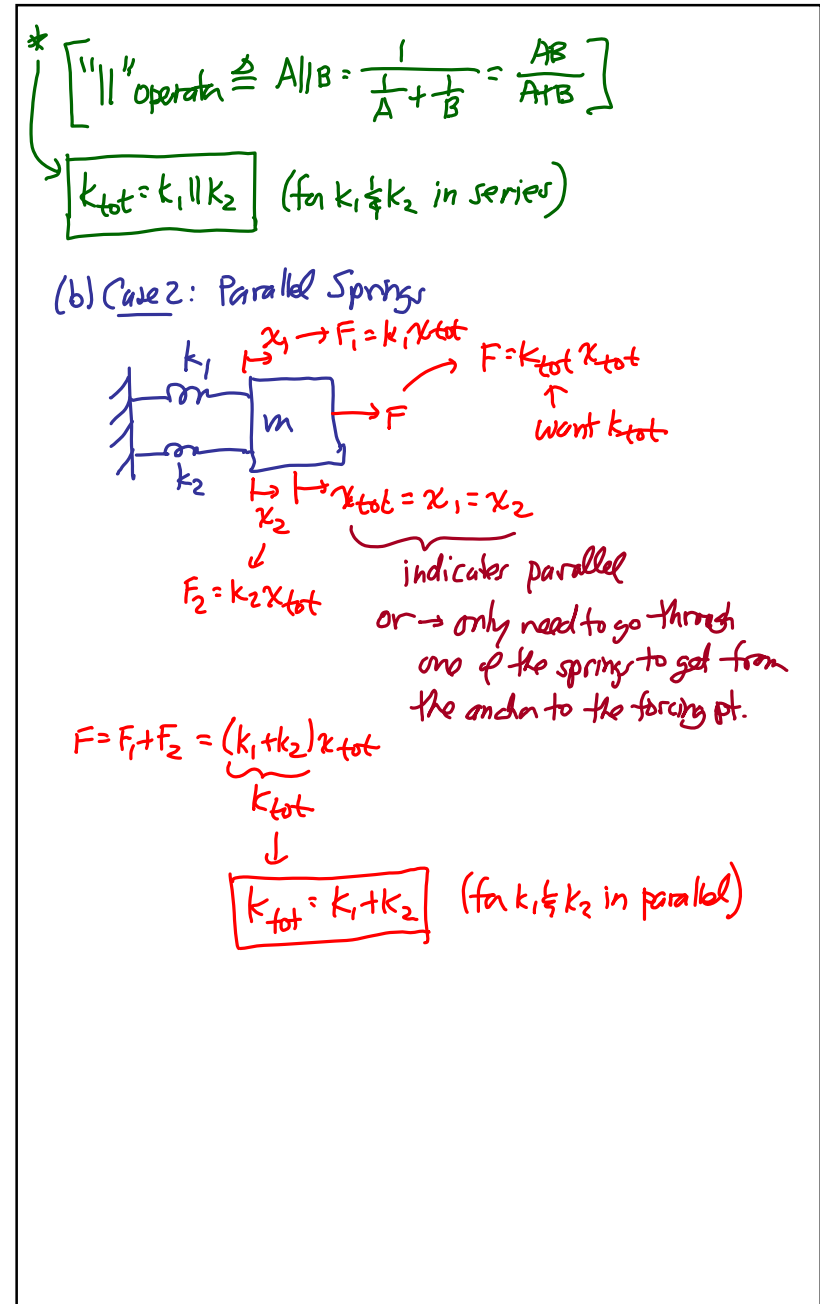 * ["||" operator ≜ A||B = 1/(1/A + 1/B) = AB/(A+B)]
k_tot = k₁||k₂ (for k₁ & k₂ in series)
(b) Case 2: Parallel Springs
x₁ → F₁ = k₁x_tot
k₁
F = k_tot x_tot
m
F
want k_tot
k₂
x₂
x_tot = x₁ = x₂
F₂ = k₂x_tot
indicates parallel
or → only need to go through
one of the springs to get from
the anchor to the forcing pt.
F = F₁ + F₂ = (k₁+k₂)x_tot
k_tot
k_tot = k₁+k₂ (for k₁ & k₂ in parallel)